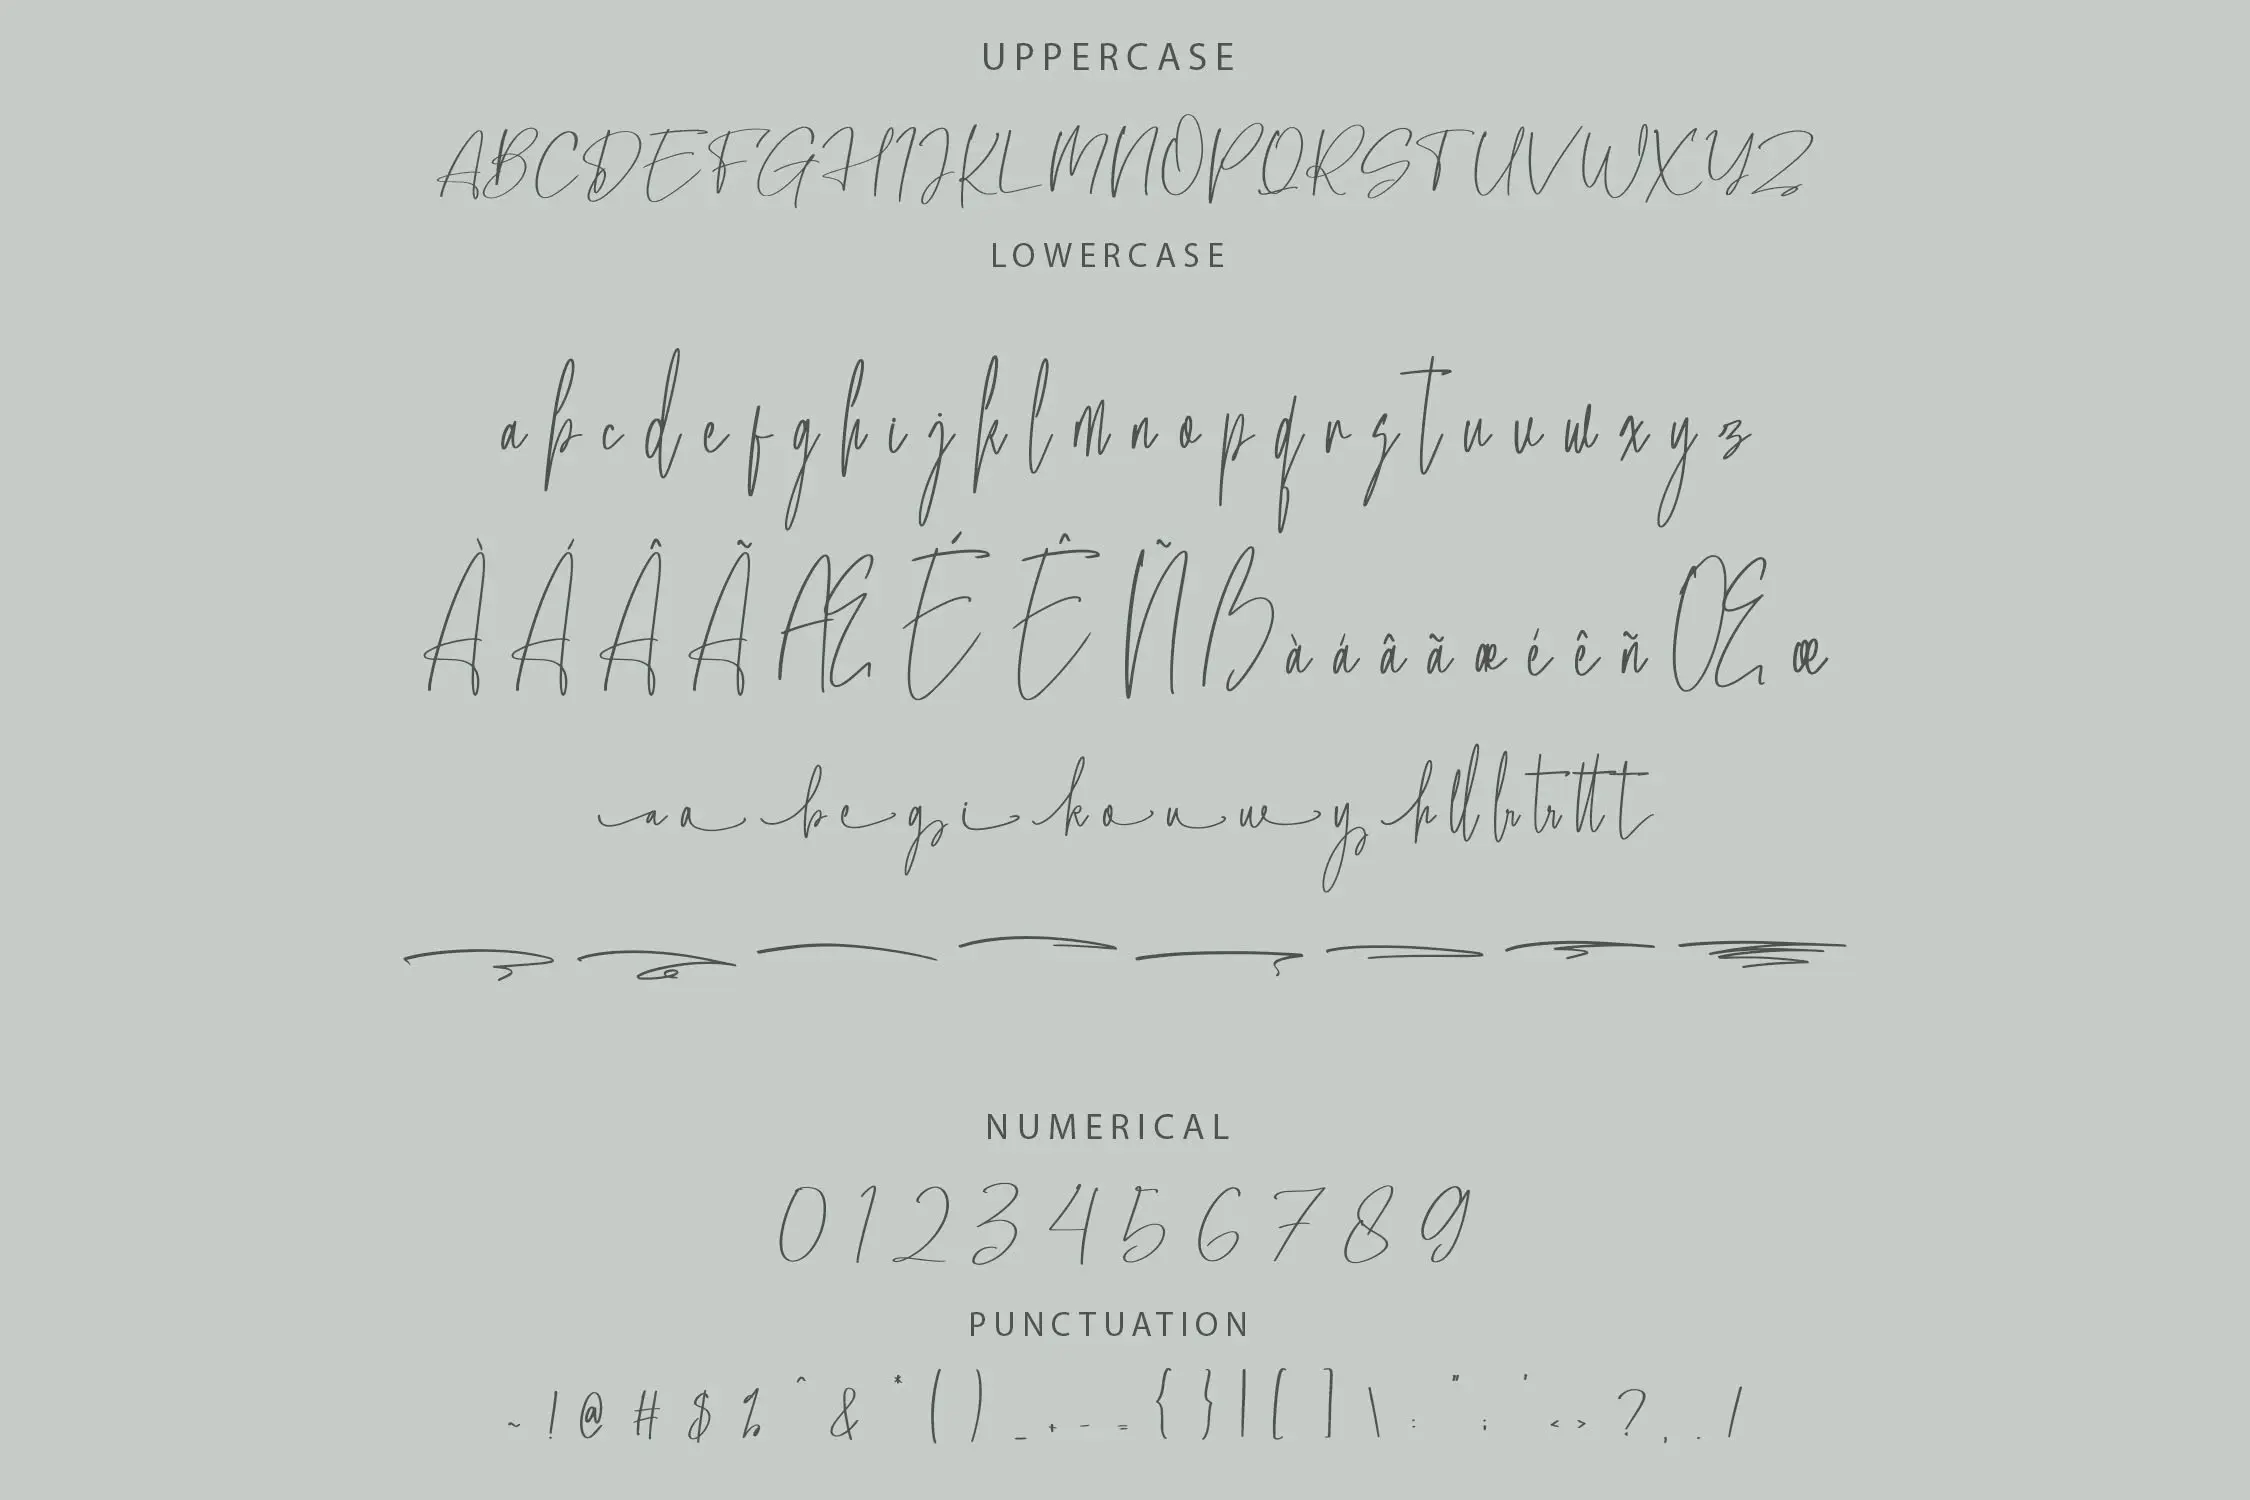 UPPERCASE
ABCDEFGHIJKLMNOPQRSTUVWXYZ
LOWERCASE
a b c d e f g h i j k l m n o p q r s t u v w x y z
À Á Â Ã Æ É Ê Ñ ß à á â ã æ é ê ñ Œ œ
a a b e g i k o u w y h ll lr tr tt t
NUMERICAL
0 1 2 3 4 5 6 7 8 9
PUNCTUATION
~ ! @ # $ % ^ & * ( ) _ + - = { } | [ ] \ : " ; ' < > ? , . /